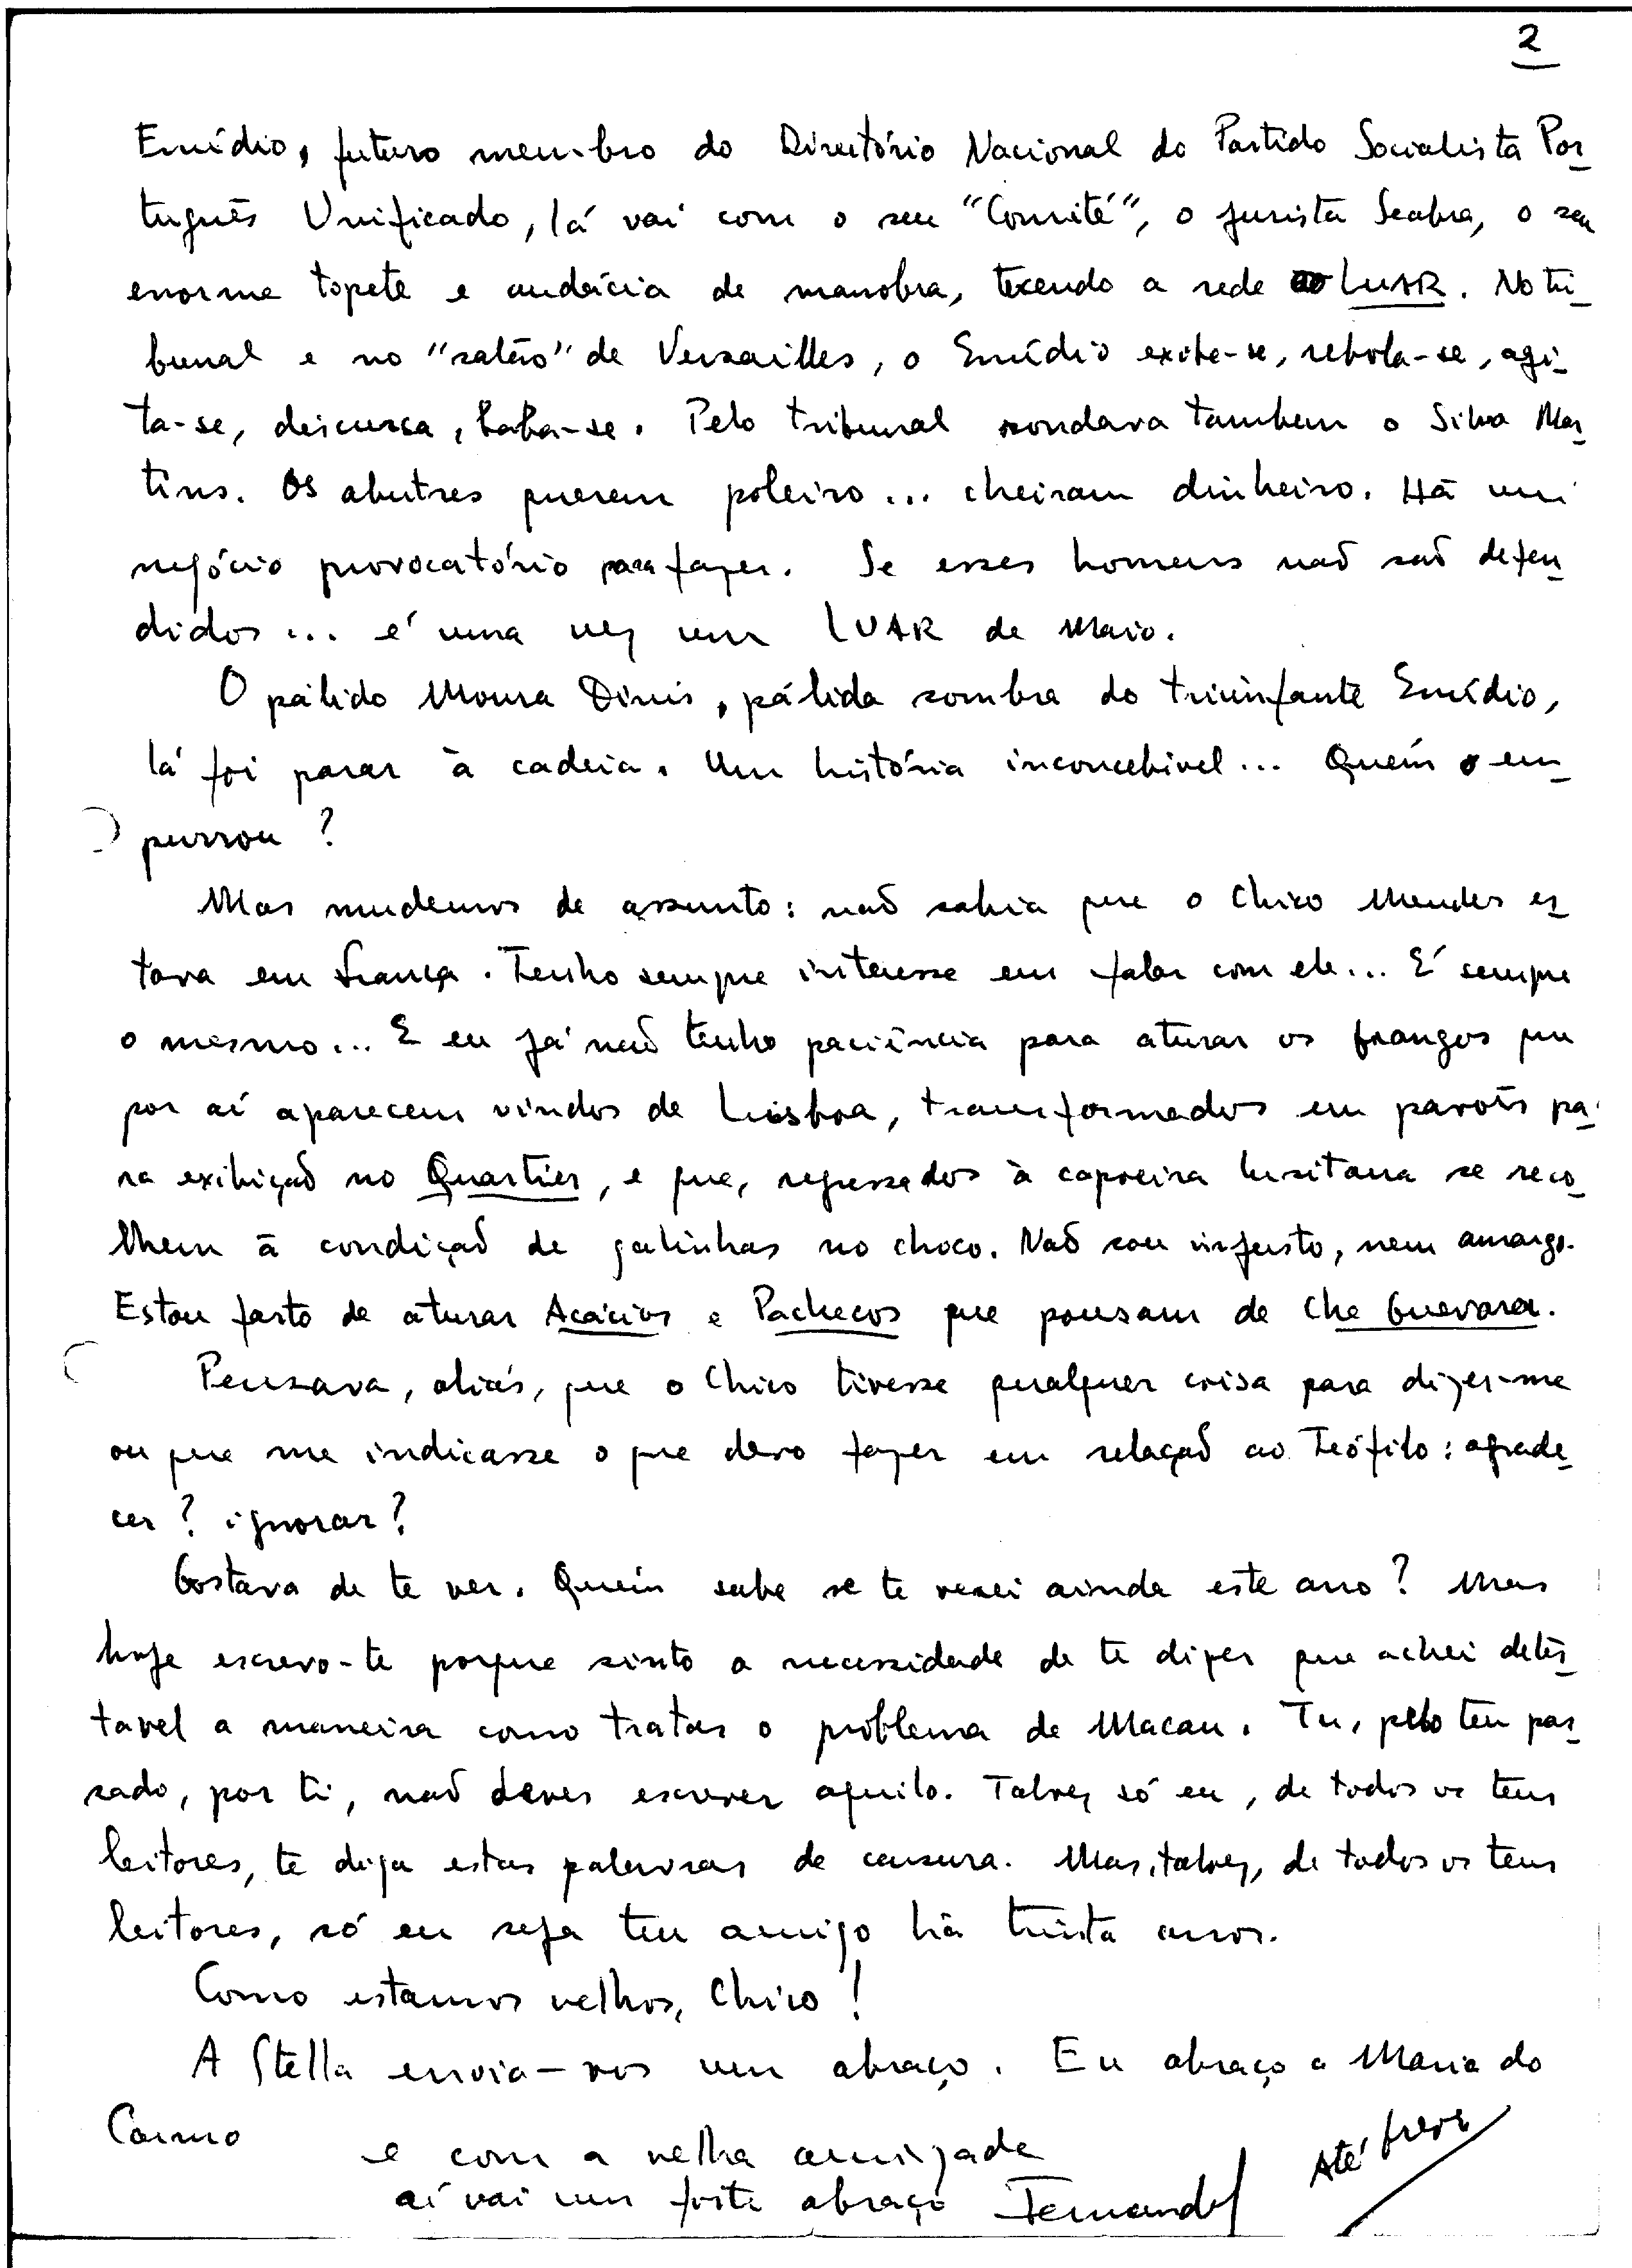 2
Emídio, futuro membro do Directório Nacional do Partido Socialista Por-
tuguês Unificado, lá vai com o seu "Comité", o jurista Seabra, o seu
enorme topete e audácia de manobra, tecendo a rede LUAR. No tri-
bunal e no "salão" de Versailles, o Emídio exibe-se, rebola-se, agi-
ta-se, discursa, baba-se. Pelo tribunal rondava tambem o Silva Mar-
tins. Os abutres querem poleiro... cheiram dinheiro. Há um
negócio provocatório para fazer. Se esses homens naõ saõ defen-
didos... é uma vez um LUAR de Maio.
O pálido Moura Dinis, pálida sombra do triunfante Emídio,
lá foi parar à cadeia. Um história inconcebivel... Quem o em-
purrou?
Mas mudemos de assunto: naõ sabia que o Chico Mendes es-
tava em França. Tenho sempre interesse em falar com ele... É sempre
o mesmo... E eu já naõ tenho paciência para aturar os frangos que
por aí aparecem vindos de Lisboa, transformados em pavões pa-
ra exibiçaõ no Quartier, e que, regressados à capoeira lusitana se reco-
lhem à condiçaõ de galinhas no choco. Naõ sou injusto, nem amargo.
Estou farto de aturar Acácios e Pachecos que pousam de Che Guevara.
Pensava, aliás, que o Chico tivesse qualquer coisa para dizer-me
ou que me indicasse o que devo fazer em relaçaõ ao Teófilo: agrade-
cer? ignorar?
Gostava de te ver. Quem sabe se te verei ainda este ano? Mas
hoje escrevo-te porque sinto a necessidade de te dizer que achei detes-
tavel a maneira como tratas o problema de Macau. Tu, pelo teu pas-
sado, por ti, naõ deves escrever aquilo. Talvez só eu, de todos os teus
leitores, te diga estas palavras de censura. Mas, talvez, de todos os teus
leitores, só eu seja teu amigo há trinta anos.
Como estamos velhos, Chico!
A Stella envia-vos um abraço. Eu abraço a Maria do
Carmo
e com a velha amizade
aí vai um forte abraço Fernando
Até breve